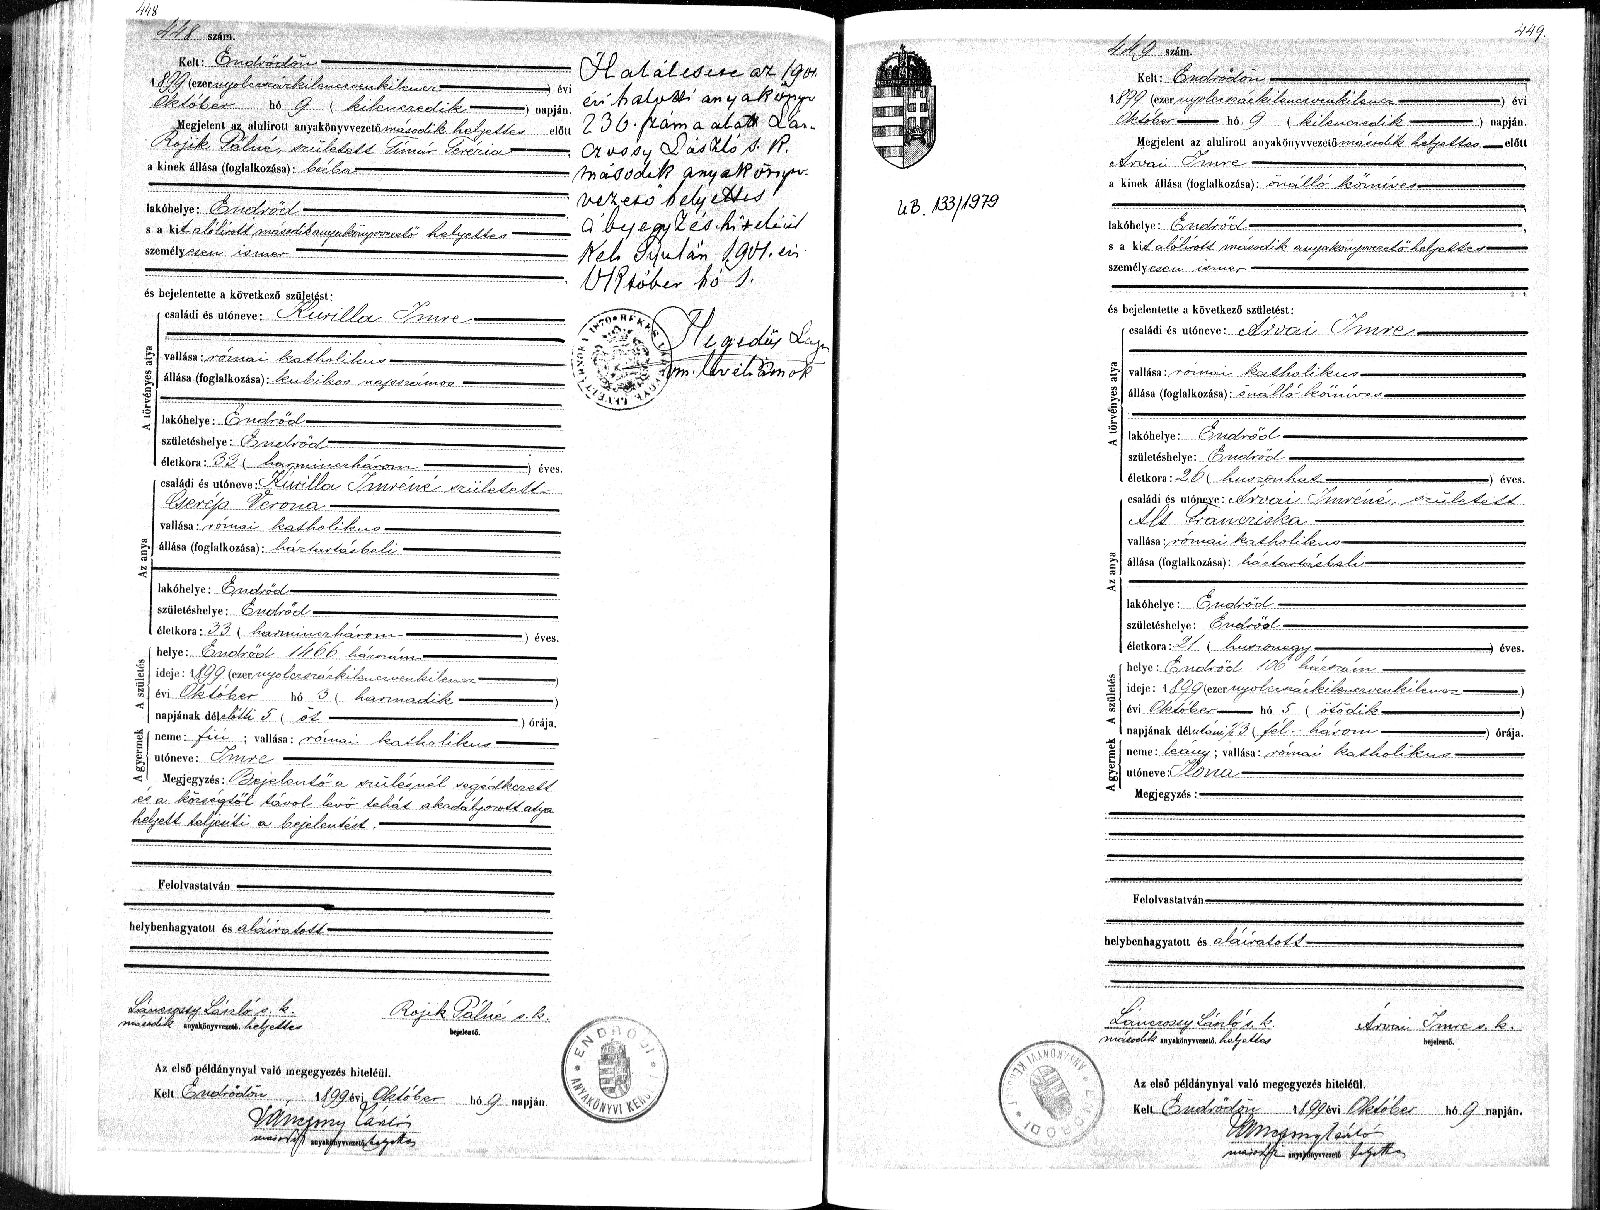 448
448 szám.
Kelt: Endrődön
1899 (ezernyolczszázkilenczvenkilencz ) évi
Október hó 9 ( kilenczedik ) napján.
Megjelent az alulirott anyakönyvvezető második helyettes előtt
Rojik Pálné, született Timár Terézia
a kinek állása (foglalkozása): bába
lakóhelye: Endrőd
s a kit alólírott második anyakönyvvezető helyettes
személyesen ismer
és bejelentette a következő születést:
A törvényes atya
családi és utóneve: Kurilla Imre
vallása: római katholikus
állása (foglalkozása): kubikos napszámos
lakóhelye: Endrőd
születéshelye: Endrőd
életkora: 33 ( harminczhárom ) éves.
Az anya
családi és utóneve: Kurilla Imréné született
Cserép Verona
vallása: római katholikus
állása (foglalkozása): háztartásbeli
lakóhelye: Endrőd
születéshelye: Endrőd
életkora: 33 ( harminczhárom ) éves.
A születés
helye: Endrőd 1466 házszám
ideje: 1899 (ezernyolczszázkilenczvenkilencz )
évi Október hó 3 ( harmadik )
napjának délelőtti 5 ( öt ) órája.
A gyermek
neme: fiú ; vallása: római katholikus
utóneve: Imre
Megjegyzés: Bejelentő a szülésnél segédkezett
és a községtől távol levő tehát akadályozott atya
helyett teljesíti a bejelentést.
Felolvastatván
helybenhagyatott és aláíratott
Lánczossy László s. k. Rojik Pálné s. k.
második anyakönyvvezető. helyettes bejelentő.
Az első példánynyal való megegyezés hiteléül.
Kelt Endrődön 1899 évi Október hó 9 napján.
Lánczossy László
második anyakönyvvezető. helyettes
ENDRŐDI
ANYAKÖNYVI KERÜLET
Halálesete az 1901.
évi halotti anyakönyv
236. száma alatt Lán-
czossy László s. k.
második anyakönyv-
vezető helyettes
a bejegyzés hiteléül
Kelt Gyulán, 1901. évi
Október hó 1.
Hegedűs Lajos
vm. levéltárnok
449.
449 szám.
Kelt: Endrődön
1899 (ezernyolczszázkilenczvenkilencz ) évi
Október hó 9 ( kilenczedik ) napján.
Megjelent az alulirott anyakönyvvezető második helyettes előtt
Árvai Imre
a kinek állása (foglalkozása): önálló kőmíves
lakóhelye: Endrőd
s a kit alólírott második anyakönyvvezető helyettes
személyesen ismer
és bejelentette a következő születést:
A törvényes atya
családi és utóneve: Árvai Imre
vallása: római katholikus
állása (foglalkozása): önálló kőmíves
lakóhelye: Endrőd
születéshelye: Endrőd
életkora: 26 ( huszonhat ) éves.
Az anya
családi és utóneve: Árvai Imréné, született
Alt Francziska
vallása: római katholikus
állása (foglalkozása): háztartásbeli
lakóhelye: Endrőd
születéshelye: Endrőd
életkora: 21 ( huszonegy ) éves.
A születés
helye: Endrőd 106 házszám
ideje: 1899 (ezernyolczszázkilenczvenkilencz )
évi Október hó 5 ( ötödik )
napjának délutáni ½3 ( fél három ) órája.
A gyermek
neme: leány ; vallása: római katholikus
utóneve: Ilona
Megjegyzés:
Felolvastatván
helybenhagyatott és aláíratott
Lánczossy László s. k. Árvai Imre s. k.
második anyakönyvvezető. helyettes bejelentő.
Az első példánynyal való megegyezés hiteléül.
Kelt Endrődön 1899 évi Október hó 9 napján.
Lánczossy László
második anyakönyvvezető helyettes
UB. 133/1979
ENDRŐDI